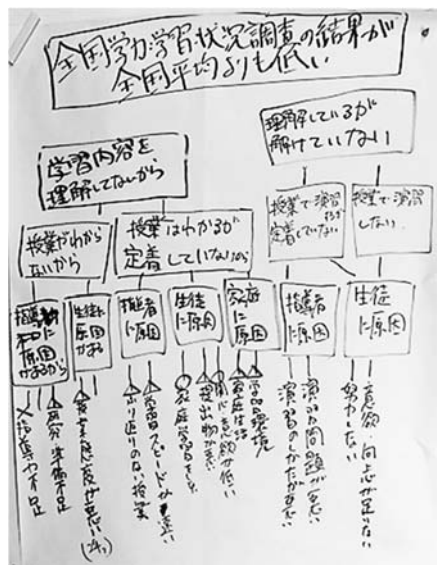 全国学力学習状況調査の結果が
全国平均よりも低い
学習内容を
理解してないから
理解しているが
解けていない
授業がわから
ないから
授業はわかるが
定着していないから
授業で演習
するが
定着していない
授業で演習
しない
指導者に
原因が
あるから
生徒に
原因が
ある
指導者
に原因
生徒
に原因
家庭
に原因
指導者
に原因
生徒
に原因
指導力不足
研究・準備不足
授業態度が悪い
ふり返りのない授業
学習スピードが速い
家庭学習をしない
提出物が悪い
関心・意欲が低い
家庭生活
学習環境
演習のしかたが悪い
演習の問題が悪い
努力しない
意欲・向上心が足りない